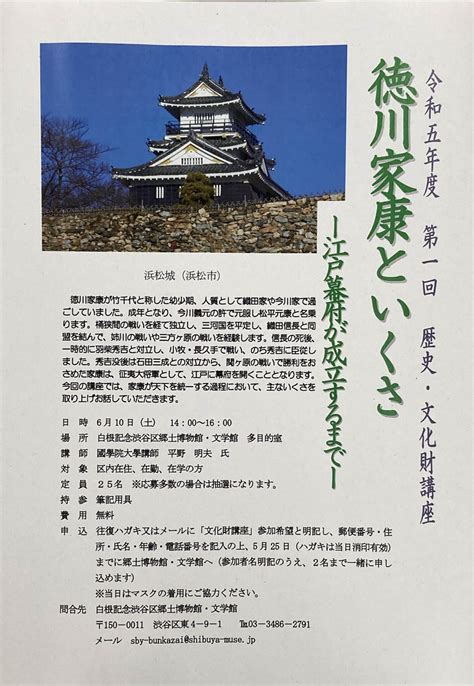 令和五年度　第一回　歴史・文化財講座
徳川家康といくさ
ー江戸幕府が成立するまでー
浜松城（浜松市）
徳川家康が竹千代と称した幼少期、人質として織田家や今川家で過
ごしていました。成年となり、今川義元の許で元服し松平元康と名乗
ります。桶狭間の戦いを経て独立し、三河国を平定し、織田信長と同
盟を結んで、姉川の戦いや三方ヶ原の戦いを経験します。信長の死後、
一時的に羽柴秀吉と対立し、小牧・長久手で戦い、のち秀吉に臣従し
ました。秀吉没後は石田三成との対立から、関ヶ原の戦いで勝利をお
さめた家康は、征夷大将軍として、江戸に幕府を開くこととなります。
今回の講座では、家康が天下を統一する過程において、主ないくさを
取り上げお話していただきます。
日　時　６月１０日（土）　１４：００～１６：００
場　所　白根記念渋谷区郷土博物館・文学館　多目的室
講　師　國學院大學講師　平野　明夫　氏
対　象　区内在住、在勤、在学の方
定　員　２５名　※応募多数の場合は抽選になります。
持　参　筆記用具
費　用　無料
申　込　往復ハガキ又はメールに「文化財講座」参加希望と明記し、郵便番号・住
所・氏名・年齢・電話番号を記入の上、５月２５日（ハガキは当日消印有効）
までに郷土博物館・文学館へ（参加者名明記のうえ、２名まで一緒に申し
込めます）
※当日はマスクの着用にご協力ください。
問合先　白根記念渋谷区郷土博物館・文学館
〒150-0011　渋谷区東４－９－１　℡03-3486-2791
メール　sby-bunkazai@shibuya-muse.jp